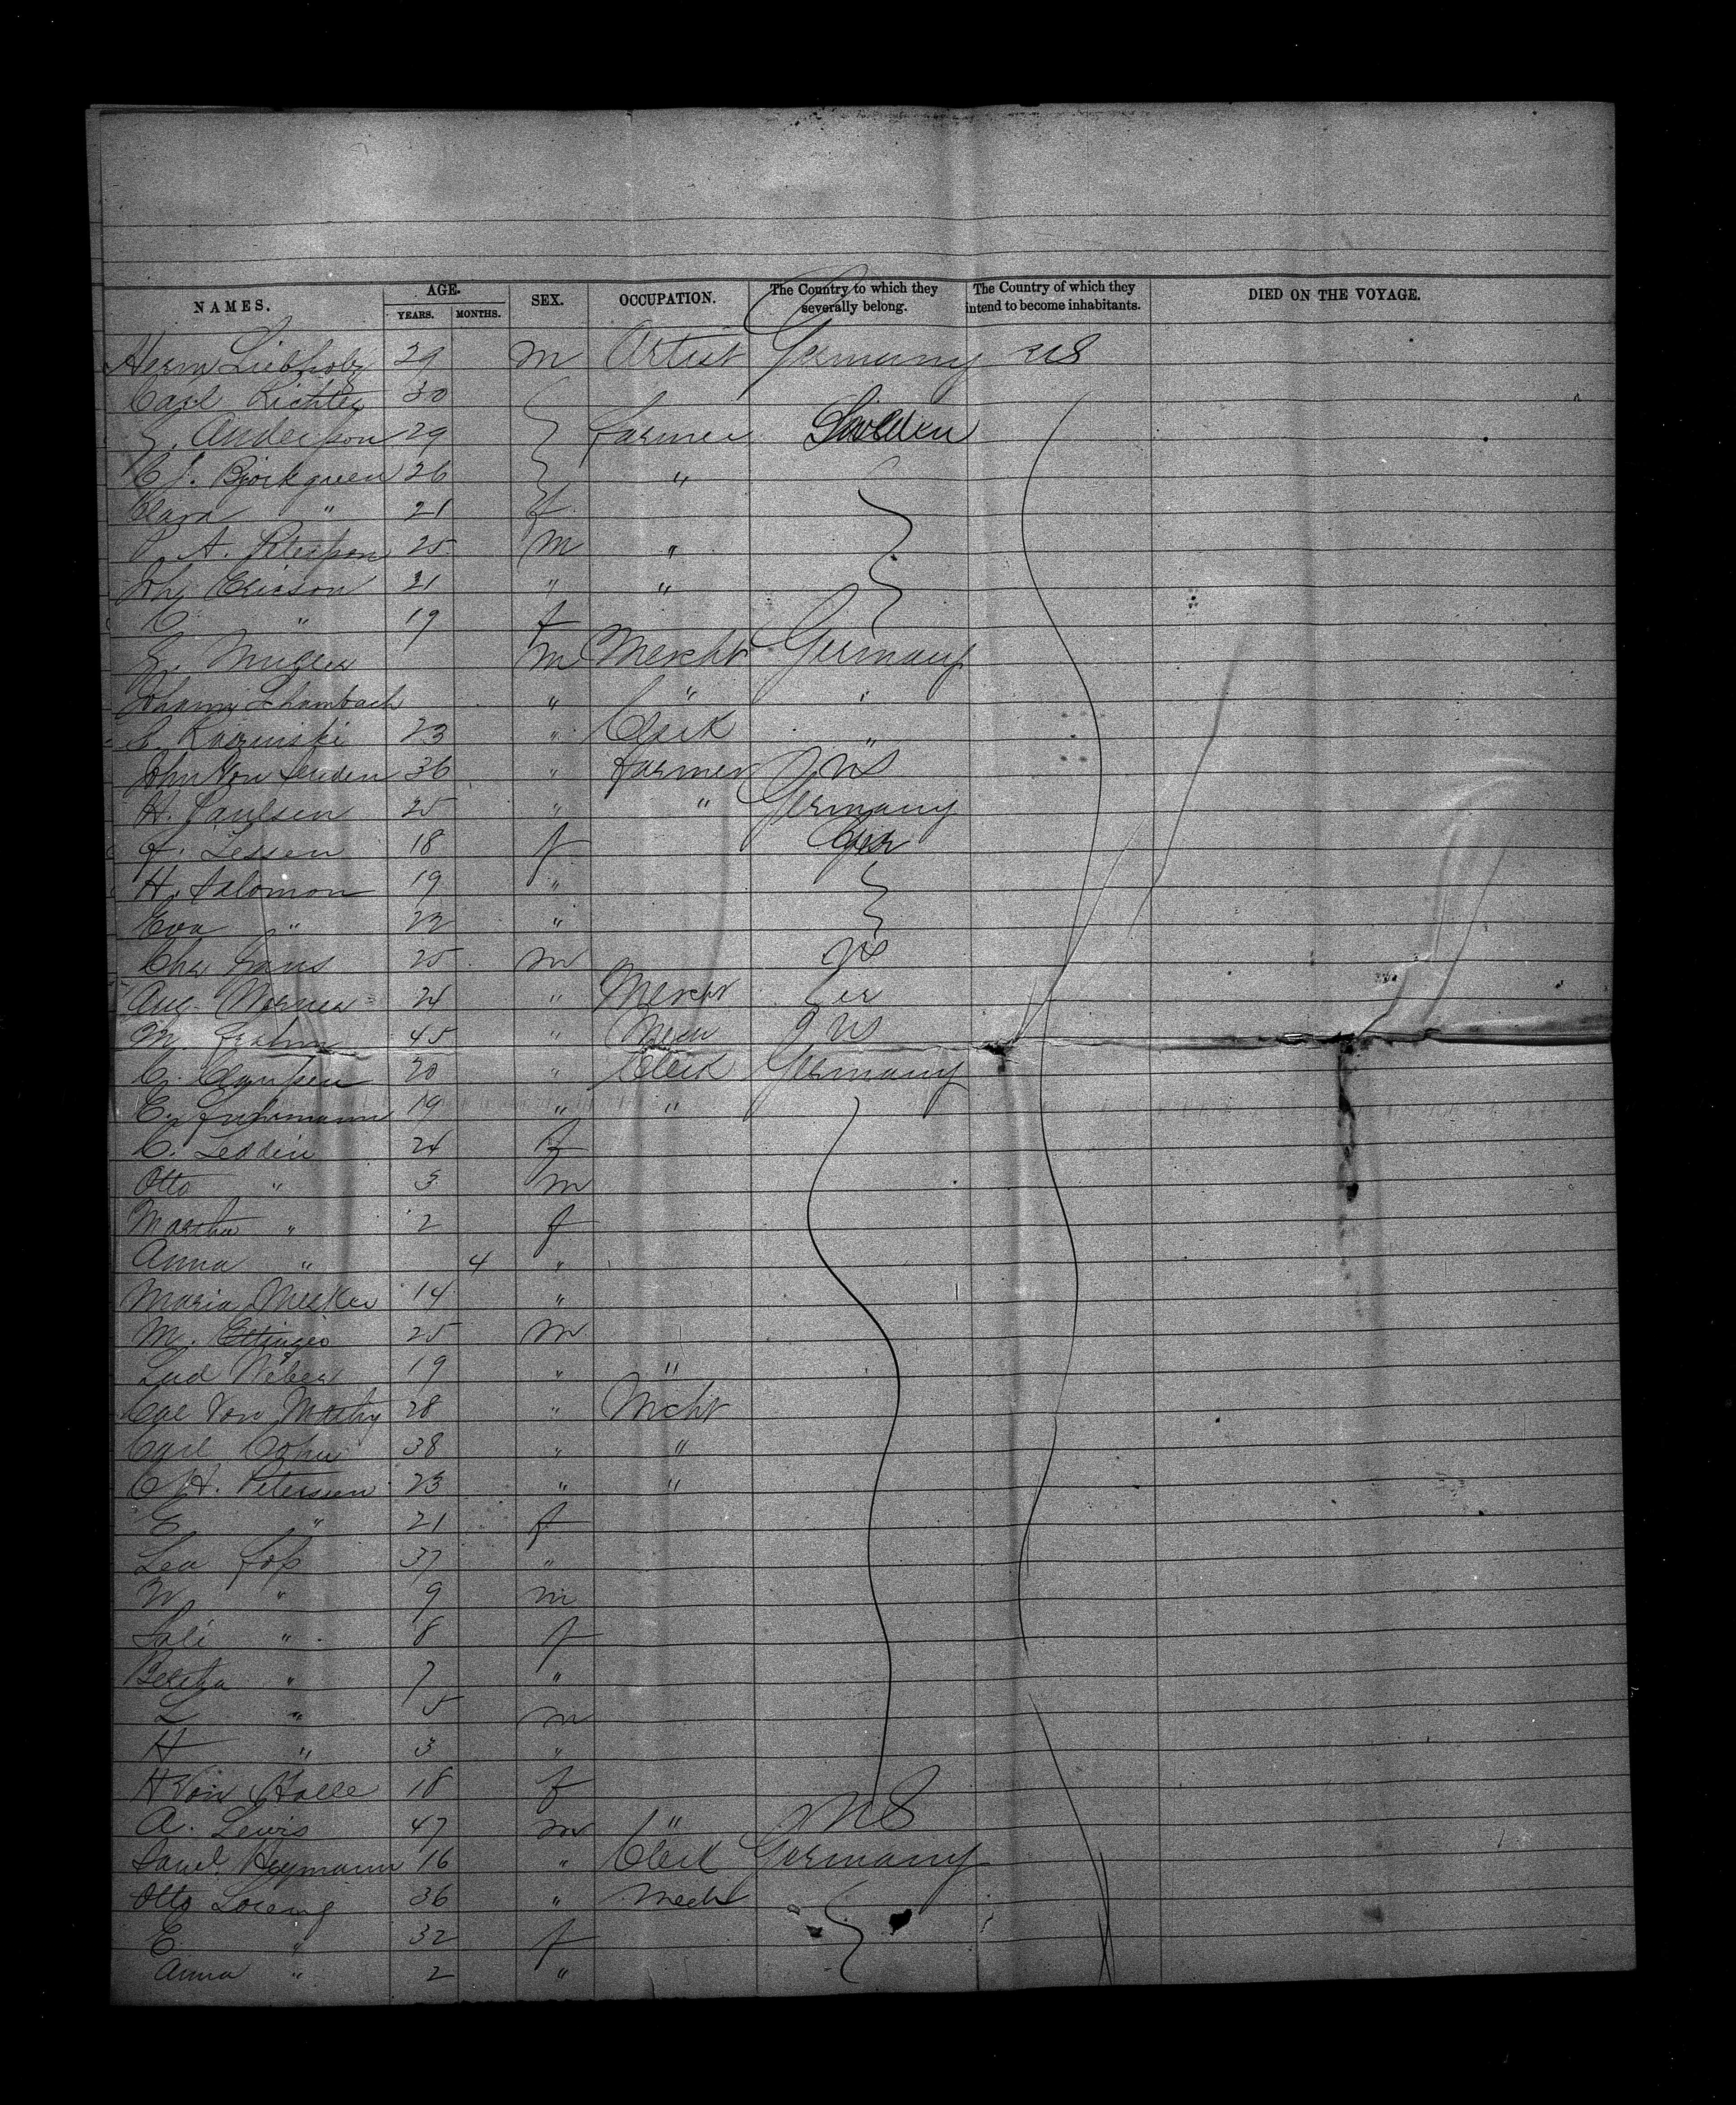 NAMES. AGE. SEX. OCCUPATION. The Country to which they severally belong. The Country of which they intend to become inhabitants. DIED ON THE VOYAGE.
YEARS. MONTHS.
Herm Liebholz 29 m Artist Germany US
Carl Richter 30
Anderson 29 farmer Sweden
C J. Björkgreen 26 "
Clara " 21 f
A. Peterson 25 m "
Joh Ericson 21 " "
C " 19 f
Muller m Mercht Germany
Schambach " " "
Kaczinski 23 " Clerk "
John Von Senden 36 " farmer US
H. Paulsen 25 " " Germany
J. Jessen 18 f Ger
H. Salomon 19 "
Eva " 22 "
Cha Gans 25 m US
Aug Werner 24 " Mercht Ger
M. Frahm 45 " US
C. Claussen 20 " Clerk Germany
E. Fuhrmann 19 " "
C. Leddin 24 f
Otto " 3 m
Martha " 2 f
Anna " 4 "
Maria Meeker 14 "
M. Ettinger 25 m
Lud Weber 19 " "
Von 28 " Mcht
Carl Cohn 38 " "
C H. Petersen 23 " "
E " 21 f
Lea 37 "
W " 9 m
Sali " 8 f
Bertha " 7 "
L " 5 m
H " 3 "
H Von Halle 18 f
A. Lewis 47 m " US
Saml Heymann 16 " Clerk Germany
Otto 36 " Mech
E " 32 f
Anna " 2 "